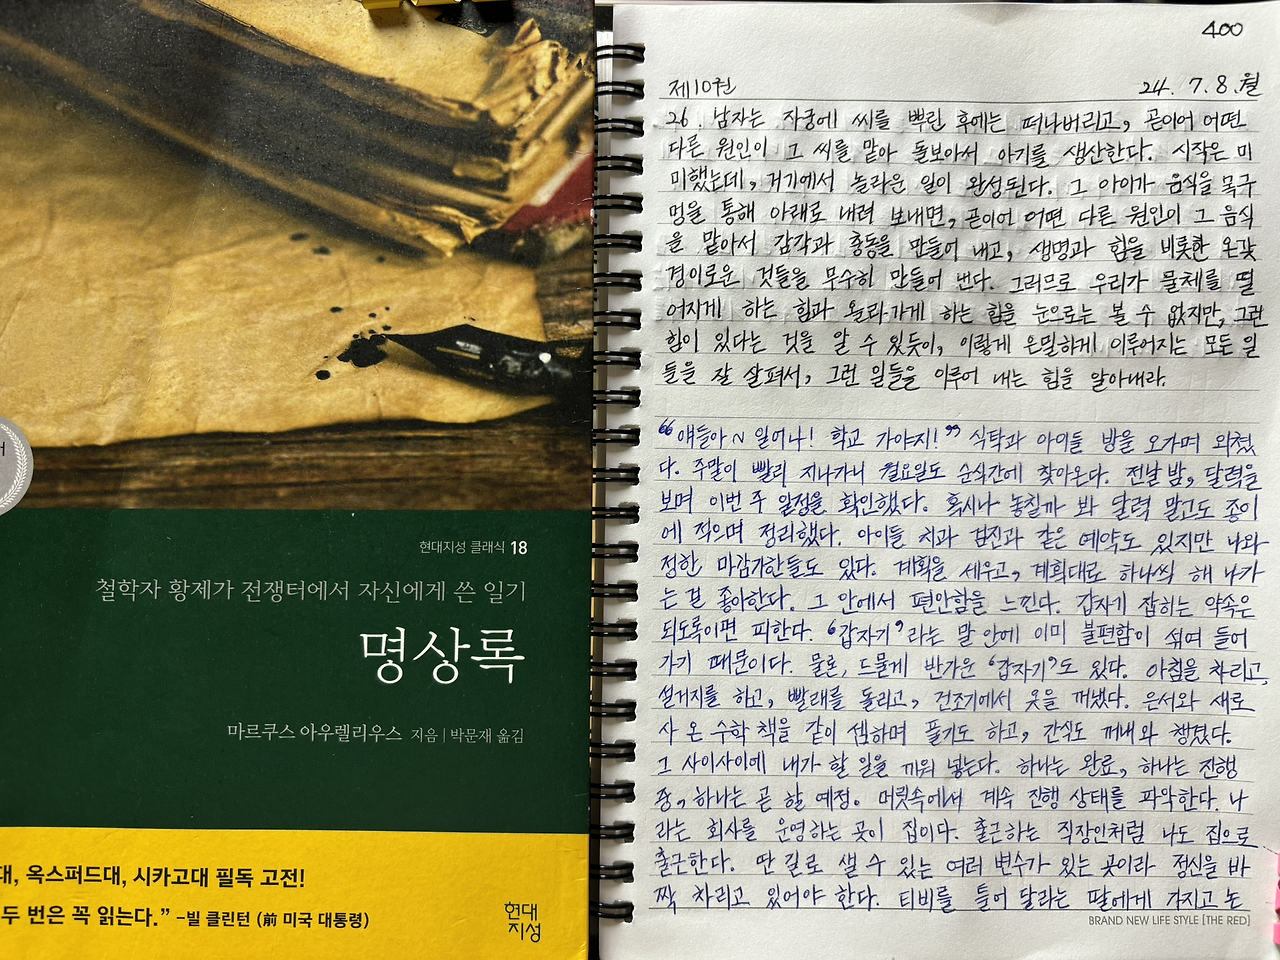 현대지성 클래식 18
철학자 황제가 전쟁터에서 자신에게 쓴 일기
명상록
마르쿠스 아우렐리우스 지음 | 박문재 옮김
대, 옥스퍼드대, 시카고대 필독 고전!
두 번은 꼭 읽는다.” –빌 클린턴 (前 미국 대통령)
현대
지성
400
제10권 24. 7. 8. 월
26. 남자는 자궁에 씨를 뿌린 후에는 떠나버리고, 곧이어 어떤
다른 원인이 그 씨를 맡아 돌보아서 아기를 생산한다. 시작은 미
미했는데, 거기에서 놀라운 일이 완성된다. 그 아이가 음식을 목구
멍을 통해 아래로 내려 보내면, 곧이어 어떤 다른 원인이 그 음식
을 맡아서 감각과 충동을 만들어 내고, 생명과 힘을 비롯한 온갖
경이로운 것들을 무수히 만들어 낸다. 그러므로 우리가 물체를 떨
어지게 하는 힘과 올라가게 하는 힘을 눈으로는 볼 수 없지만, 그런
힘이 있다는 것을 알 수 있듯이, 이렇게 은밀하게 이루어지는 모든 일
들을 잘 살펴서, 그런 일들을 이루어 내는 힘을 알아내라.
“얘들아~ 일어나! 학교 가야지!” 식탁과 아이들 방을 오가며 외쳤
다. 주말이 빨리 지나가니 월요일도 순식간에 찾아온다. 전날 밤, 달력을
보며 이번 주 일정을 확인했다. 혹시나 놓칠까 봐 달력 말고도 종이
에 적으며 정리했다. 아이들 치과 검진과 같은 예약도 있지만 나와
정한 마감기한들도 있다. 계획을 세우고, 계획대로 하나씩 해 나가
는 걸 좋아한다. 그 안에서 편안함을 느낀다. 갑자기 잡히는 약속은
되도록이면 피한다. ‘갑자기’라는 말 안에 이미 불편함이 섞여 들어
가기 때문이다. 물론, 드물게 반가운 ‘갑자기’도 있다. 아침을 차리고,
설거지를 하고, 빨래를 돌리고, 건조기에서 옷을 꺼냈다. 은서와 새로
사 온 수학 책을 같이 셈하며 풀기도 하고, 간식도 꺼내 와 챙겼다.
그 사이사이에 내가 할 일을 끼워 넣는다. 하나는 완료, 하나는 진행
중, 하나는 곧 할 예정. 머릿속에서 계속 진행 상태를 파악한다. 나
라는 회사를 운영하는 곳이 집이다. 출근하는 직장인처럼 나도 집으로
출근한다. 딴 길로 샐 수 있는 여러 변수가 있는 곳이라 정신을 바
짝 차리고 있어야 한다. 티비를 틀어 달라는 딸에게 가지고 논
BRAND NEW LIFE STYLE [THE RED]